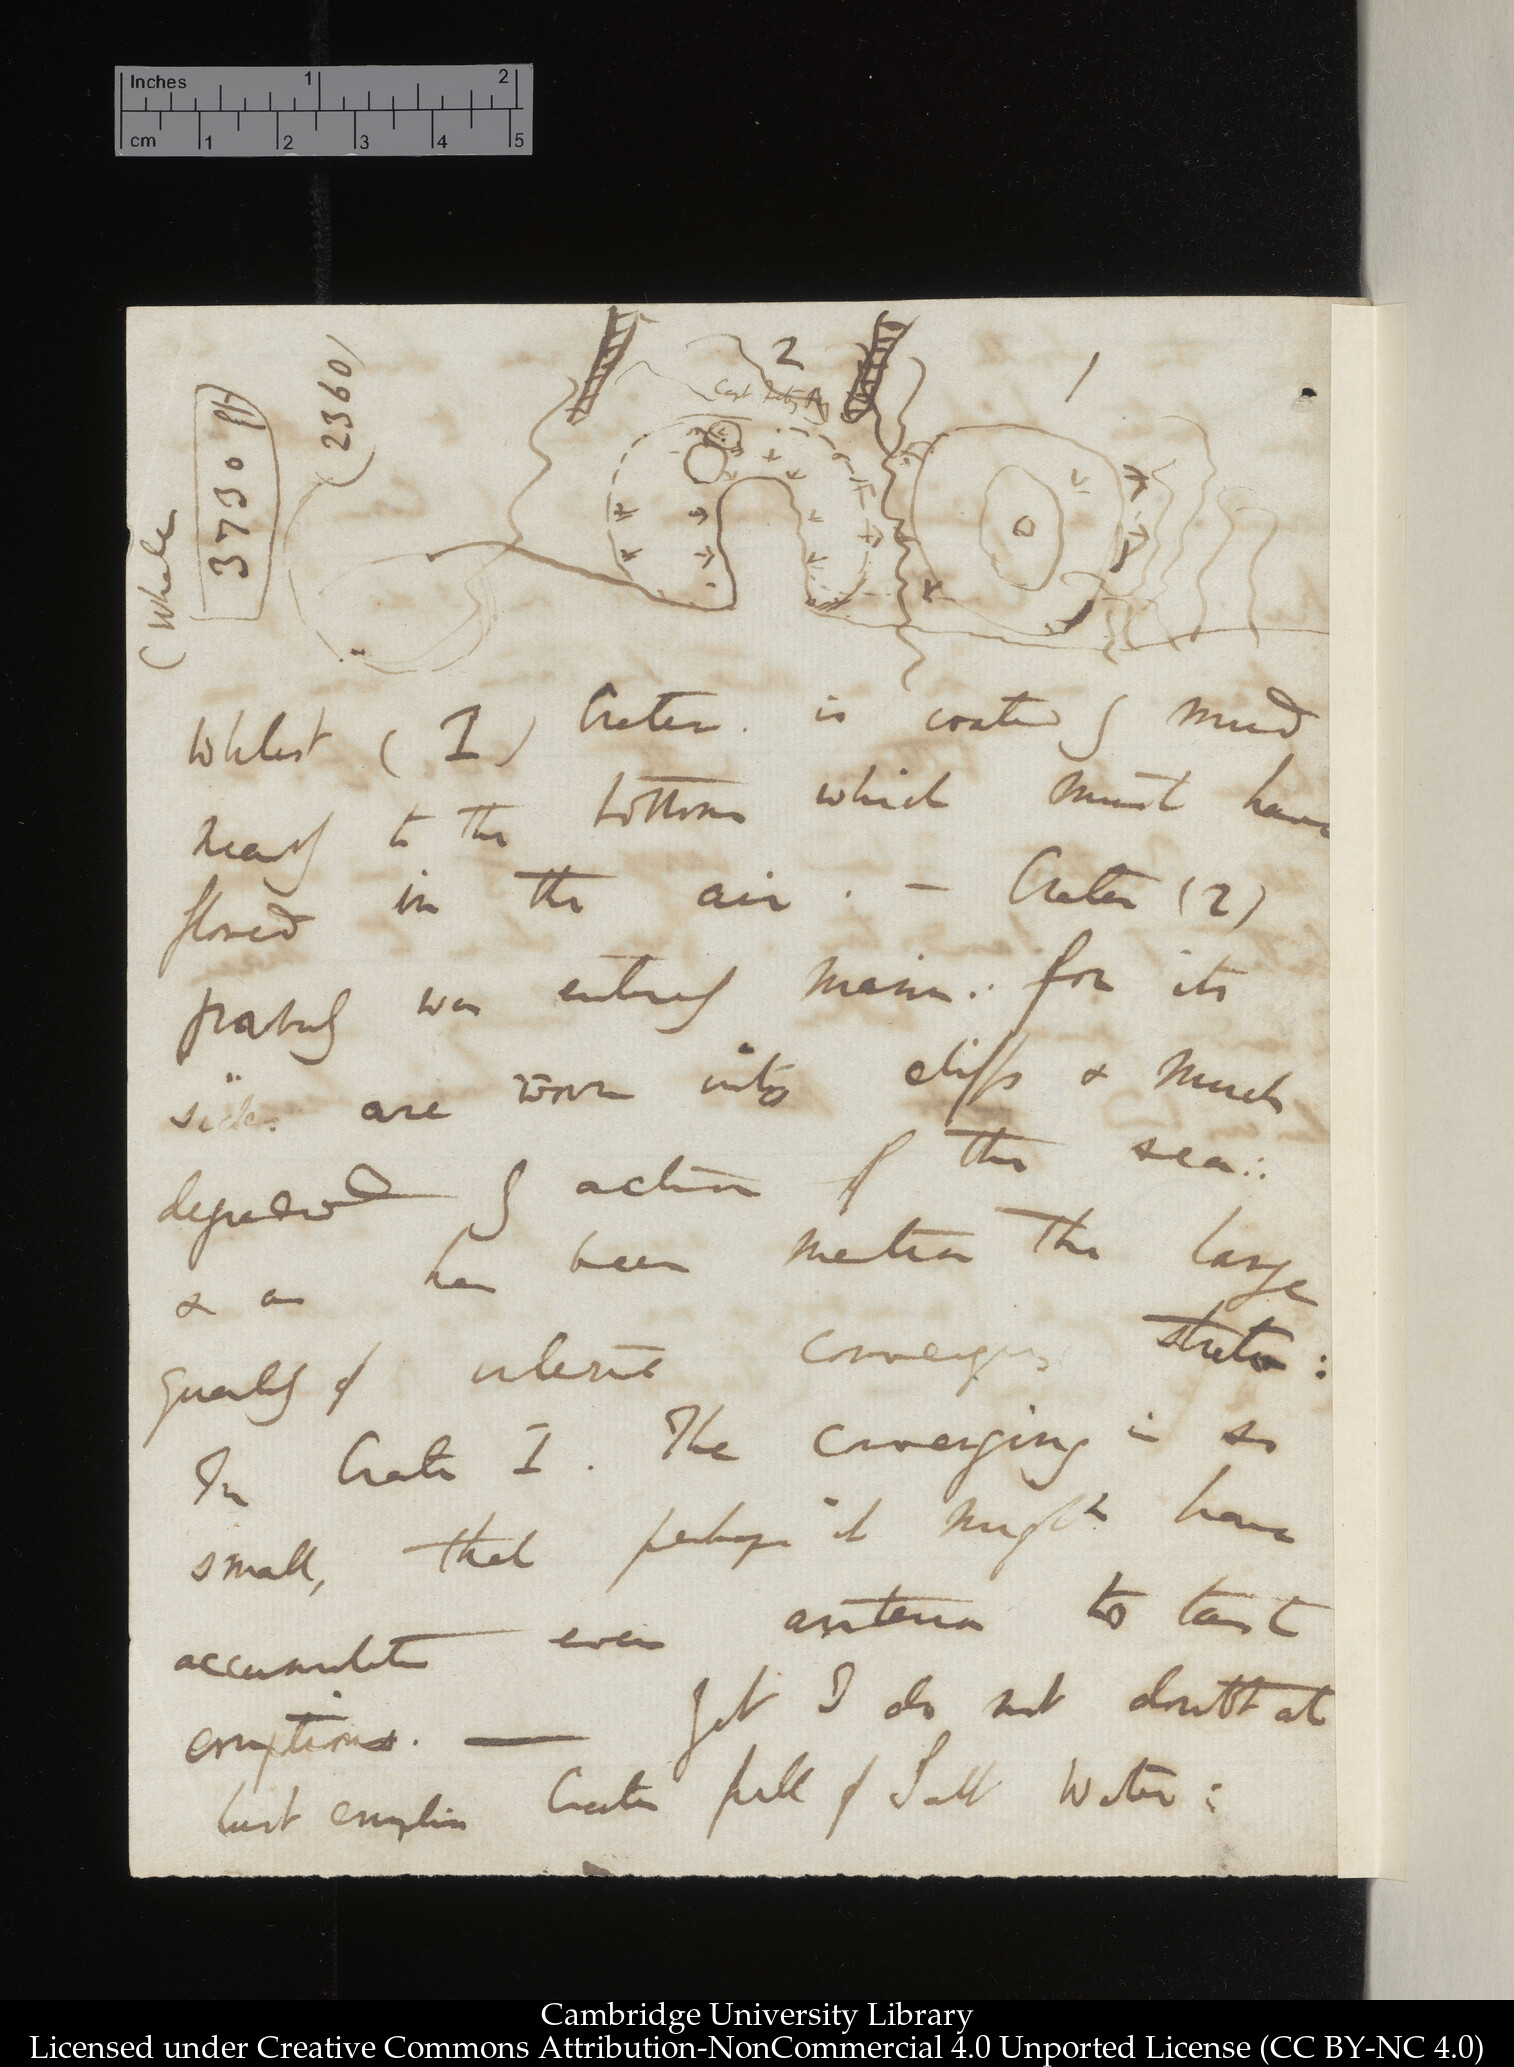 Inches 1 2
cm 1 2 3 4 5
(Whale
3730 (ft)
(2360)
2
1
Whilst (I) Crater. is coated by mud
nearly to the bottom which must have
flowed in the air. — Crater (2)
probably was entirely marin.: for its
sides are worn into cliffs & much
degraded by action of the sea:
& as has been mention the large
quality of interior converging strata:
In Crater I. The converging is so
small, that perhaps it might have
accumulated even anterior to last
eruptions. — Yet I do not doubt at
last eruption Crater full of Salt Water:
Cambridge University Library
Licensed under Creative Commons Attribution-NonCommercial 4.0 Unported License (CC BY-NC 4.0)